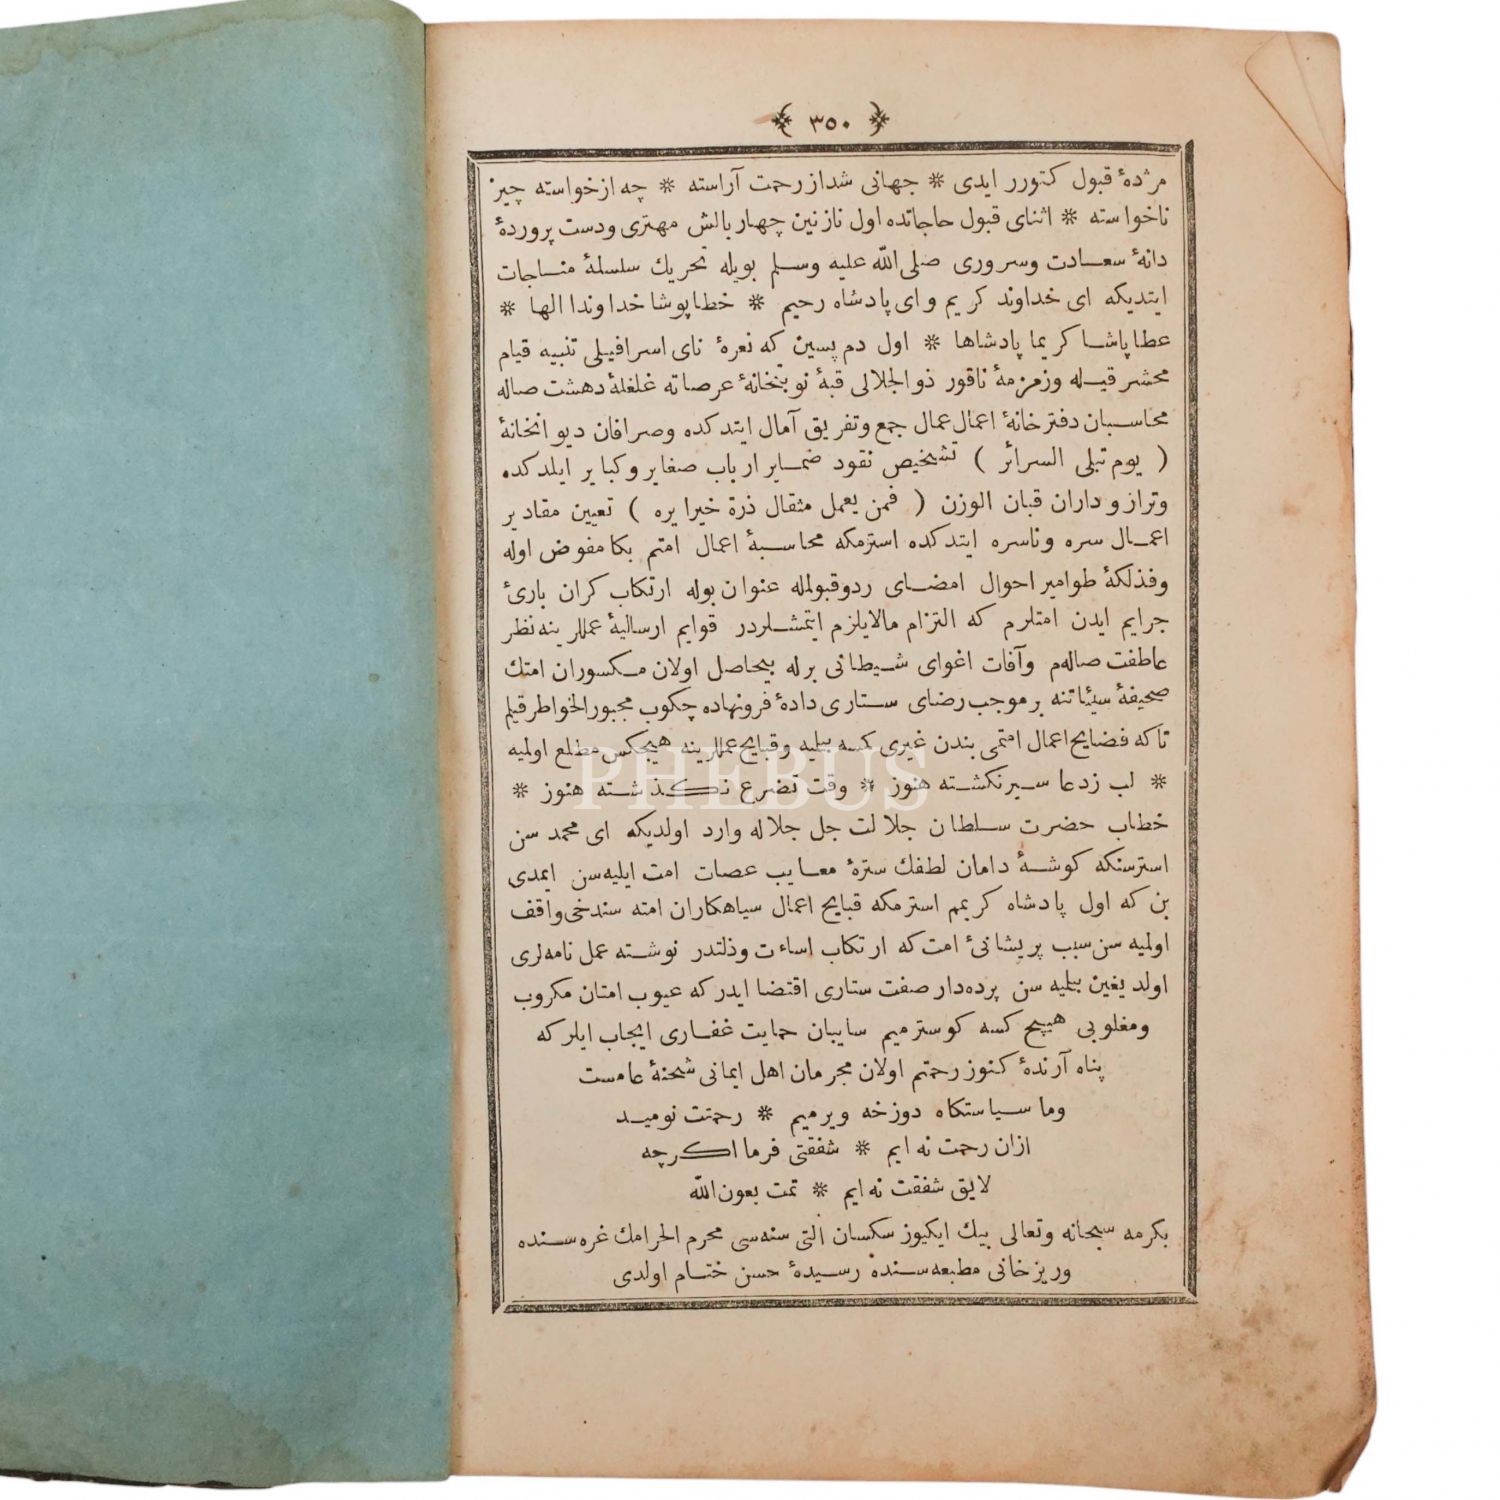 ٣٥٠
مژدهٔ قبول کتورر ایدی * جهانی شد از رحمت آراسته * چه از خواسته چیز
ناخواسته * اثنای قبول حاجاتده اول نازنین چهار بالش مهتری ودست پروردهٔ
دانهٔ سعادت وسروری صلی الله علیه وسلم بویله تحریك سلسلهٔ مناجات
ایتدیکه ای خداوند کریم وای پادشاه رحیم * خطاپوشا خداوندا الها *
عطاپاشا کریما پادشاها * اول دم پسین که نعرهٔ نای اسرافیلی تنبیه قیام
محشر قیله وزمزمهٔ ناقور ذوالجلالی قبهٔ نوبتخانهٔ عرصاته غلغلهٔ دهشت صاله
محاسبان دفترخانهٔ اعمال عمال جمع وتفریق آمال ایتدکده وصرافان دیوانخانهٔ
( یوم تبلی السرائر ) تشخیص نقود ضمایر ارباب صغایر وکبایر ایلدکده
وترازوداران قبان الوزن ( فمن یعمل مثقال ذرة خیرا یره ) تعیین مقادیر
اعمال سره وناسره ایتدکده استرمکه محاسبهٔ اعمال امتم بکا مفوض اوله
وفذلکهٔ طوامیر احوال امضای ردوقبولمله عنوان بوله ارتکاب کران باریٔ
جرایم ایدن امتلرم که التزام مالایلزم ایتمشلردر قوایم ارسالیهٔ عمللرینه نظر
عاطفت صالهم وآفات اغوای شیطانی برله بیحاصل اولان مکسوران امتك
صحیفهٔ سیئاتنه برموجب رضای ستاری دادهٔ فرونهاده چکوب مجبورالخواطر قیلم
تاکه فضایح اعمال امتمی بندن غیری کسه بیلیه وقبایح عمللرینه هیچکس مطلع اولمیه
* لب زدعا سیر نکشته هنوز * وقت تضرع نکذشته هنوز *
خطاب حضرت سلطان جلالت جل جلاله وارد اولدیکه ای محمد سن
استرسنکه کوشهٔ دامان لطفك سترهٔ معایب عصات امت ایلیه سن ایمدی
بن که اول پادشاه کریمم استرمکه قبایح اعمال سیاهکاران امته سندخی واقف
اولمیه سن سبب پریشانیٔ امت که ارتکاب اساءت وذلتدر نوشته عمل نامه لری
اولدیغین بیلیه سن پرده دار صفت ستاری اقتضا ایدر که عیوب امتان مکروب
ومغلوبی هیچ کسه کوسترمیم سایبان حمایت غفاری ایجاب ایلر که
پناه آرندهٔ کنوز رحمتم اولان مجرمان اهل ایمانی شحنهٔ عامست
وما سیاستکاه دوزخه ویرمیم * رحمتت نومید
ازان رحمت نه ایم * شفقتی فرما اکرچه
لایق شفقت نه ایم * تمت بعون الله
بکرمه سبحانه وتعالی بیك ایکیوز سکسان التی سنه سی محرم الحرامك غره سنده
وریزخانی مطبعه سنده رسیدهٔ حسن ختام اولدی
PHEBUS